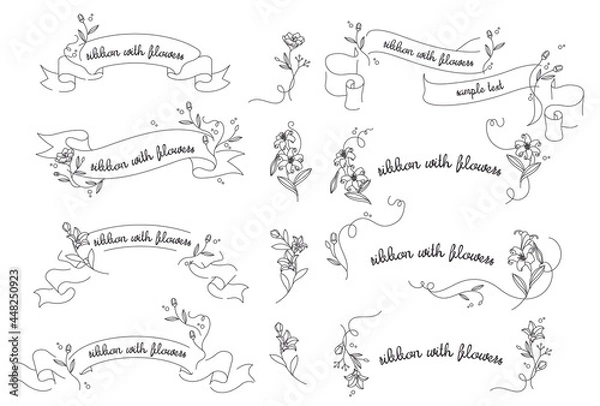 ribbon with flowers
ribbon with flowers
sample text
ribbon with flowers
ribbon with flowers
ribbon with flowers
ribbon with flowers
ribbon with flowers
ribbon with flowers
Adobe Stock | #448250923